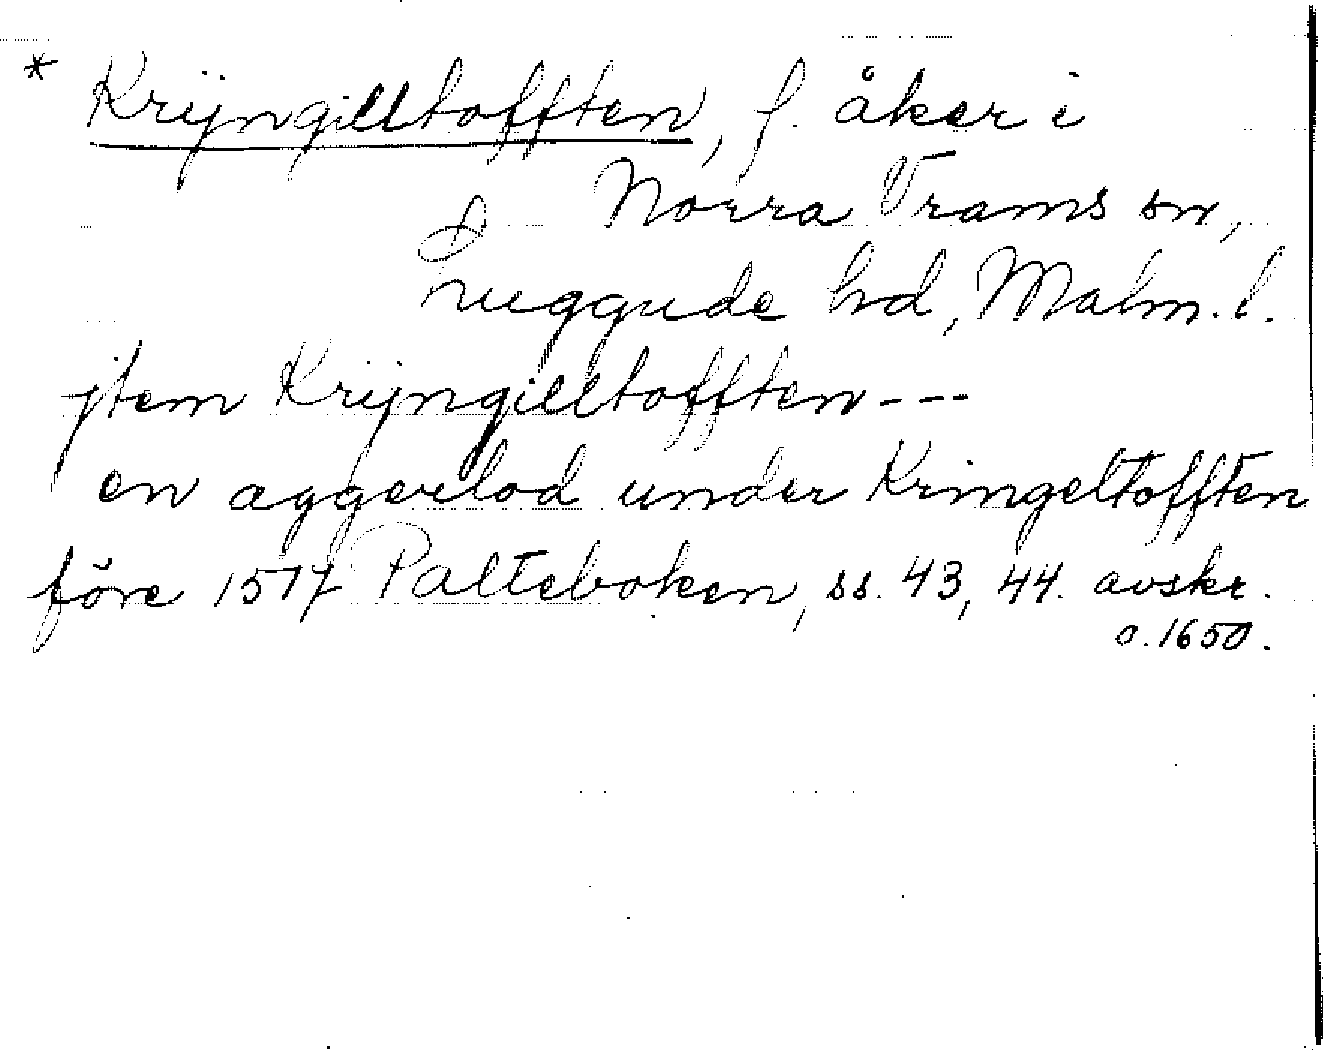 * Krijngilltofften, f. åker i
Norra Vrams sn,
Luggude hd, Malm. l.
jtem Krijngilltofften---
en aggerlod under Kringeltofften
före 1517 Palteboken, ss. 43, 44. avskr.
o. 1650.